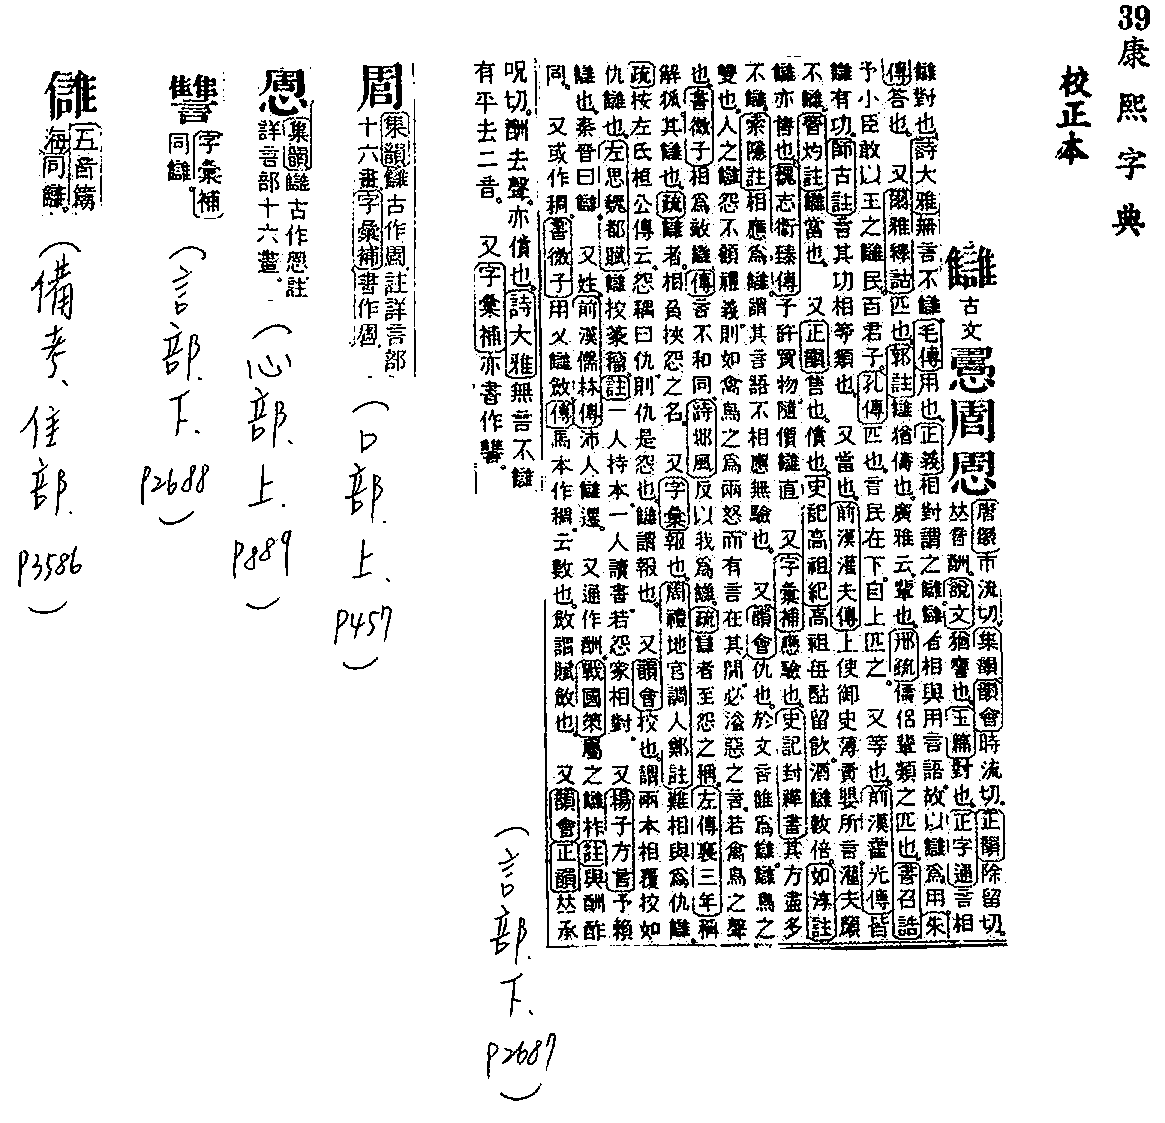 39康熙字典
校正本
讎 古文
唐韻市流切集韻韻會時流切正韻除留切
𠀤音酬說文猶譍也玉篇對也正字通言相
讎對也詩大雅無言不讎毛傳用也正義相對謂之讎讎者相與用言語故以讎爲用朱
傳答也 又爾雅釋詁匹也郭註讎猶儔也廣雅云輩也邢疏儔侶輩類之匹也書召誥
予小臣敢以王之讎民百君子孔傳匹也言民在下自上匹之 又等也前漢霍光傳皆
讎有功師古註言其功相等類也 又當也前漢灌夫傳上使御史簿責嬰所言灌夫頗
不讎晉灼註讎當也 又正韻售也償也史記高祖紀高祖每酤留飲酒讎數倍如淳註
讎亦售也魏志衞臻傳子許買物隨價讎直 又字彙補應驗也史記封禪書其方盡多
不讎索隱註相應爲讎謂其言語不相應無驗也 又韻會仇也於文言雔爲讎雔鳥之
雙也人之讎怨不顧禮義則如禽鳥之爲兩怒而有言在其閒必溢惡之言若禽鳥之聲
也書微子相爲敵讎傳言不和同詩邶風反以我爲讎疏讎者至怨之稱左傳襄三年稱
解狐其讎也疏讎者相負挾怨之名 又字彙報也周禮地官調人鄭註難相與爲仇讎
疏按左氏桓公傳云怨耦曰仇則仇是怨也讎謂報也 又韻會校也謂兩本相覆校如
仇讎也左思魏都賦讎校篆籀註一人持本一人讀書若怨家相對 又揚子方言予賴
讎也秦晉曰讎 又姓前漢儒林傳沛人讎還 又通作酬戰國策屬之讎柞註與酬酢
同 又或作稠書微子用乂讎斂傳馬本作稠云數也斂謂賦斂也 又韻會正韻𠀤承
呪切酬去聲亦償也詩大雅無言不讎
有平去二音 又字彙補亦書作讐
(言部.下.P2687)
集韻讎古作周註詳言部
十六畫字彙補書作
(口部.上.P457)
集韻讎古作註
詳言部十六畫
(心部.上.P889)
字彙補
同讎
(言部.下.P2688)
五音篇
海同讎
(備考.隹部.P3586)